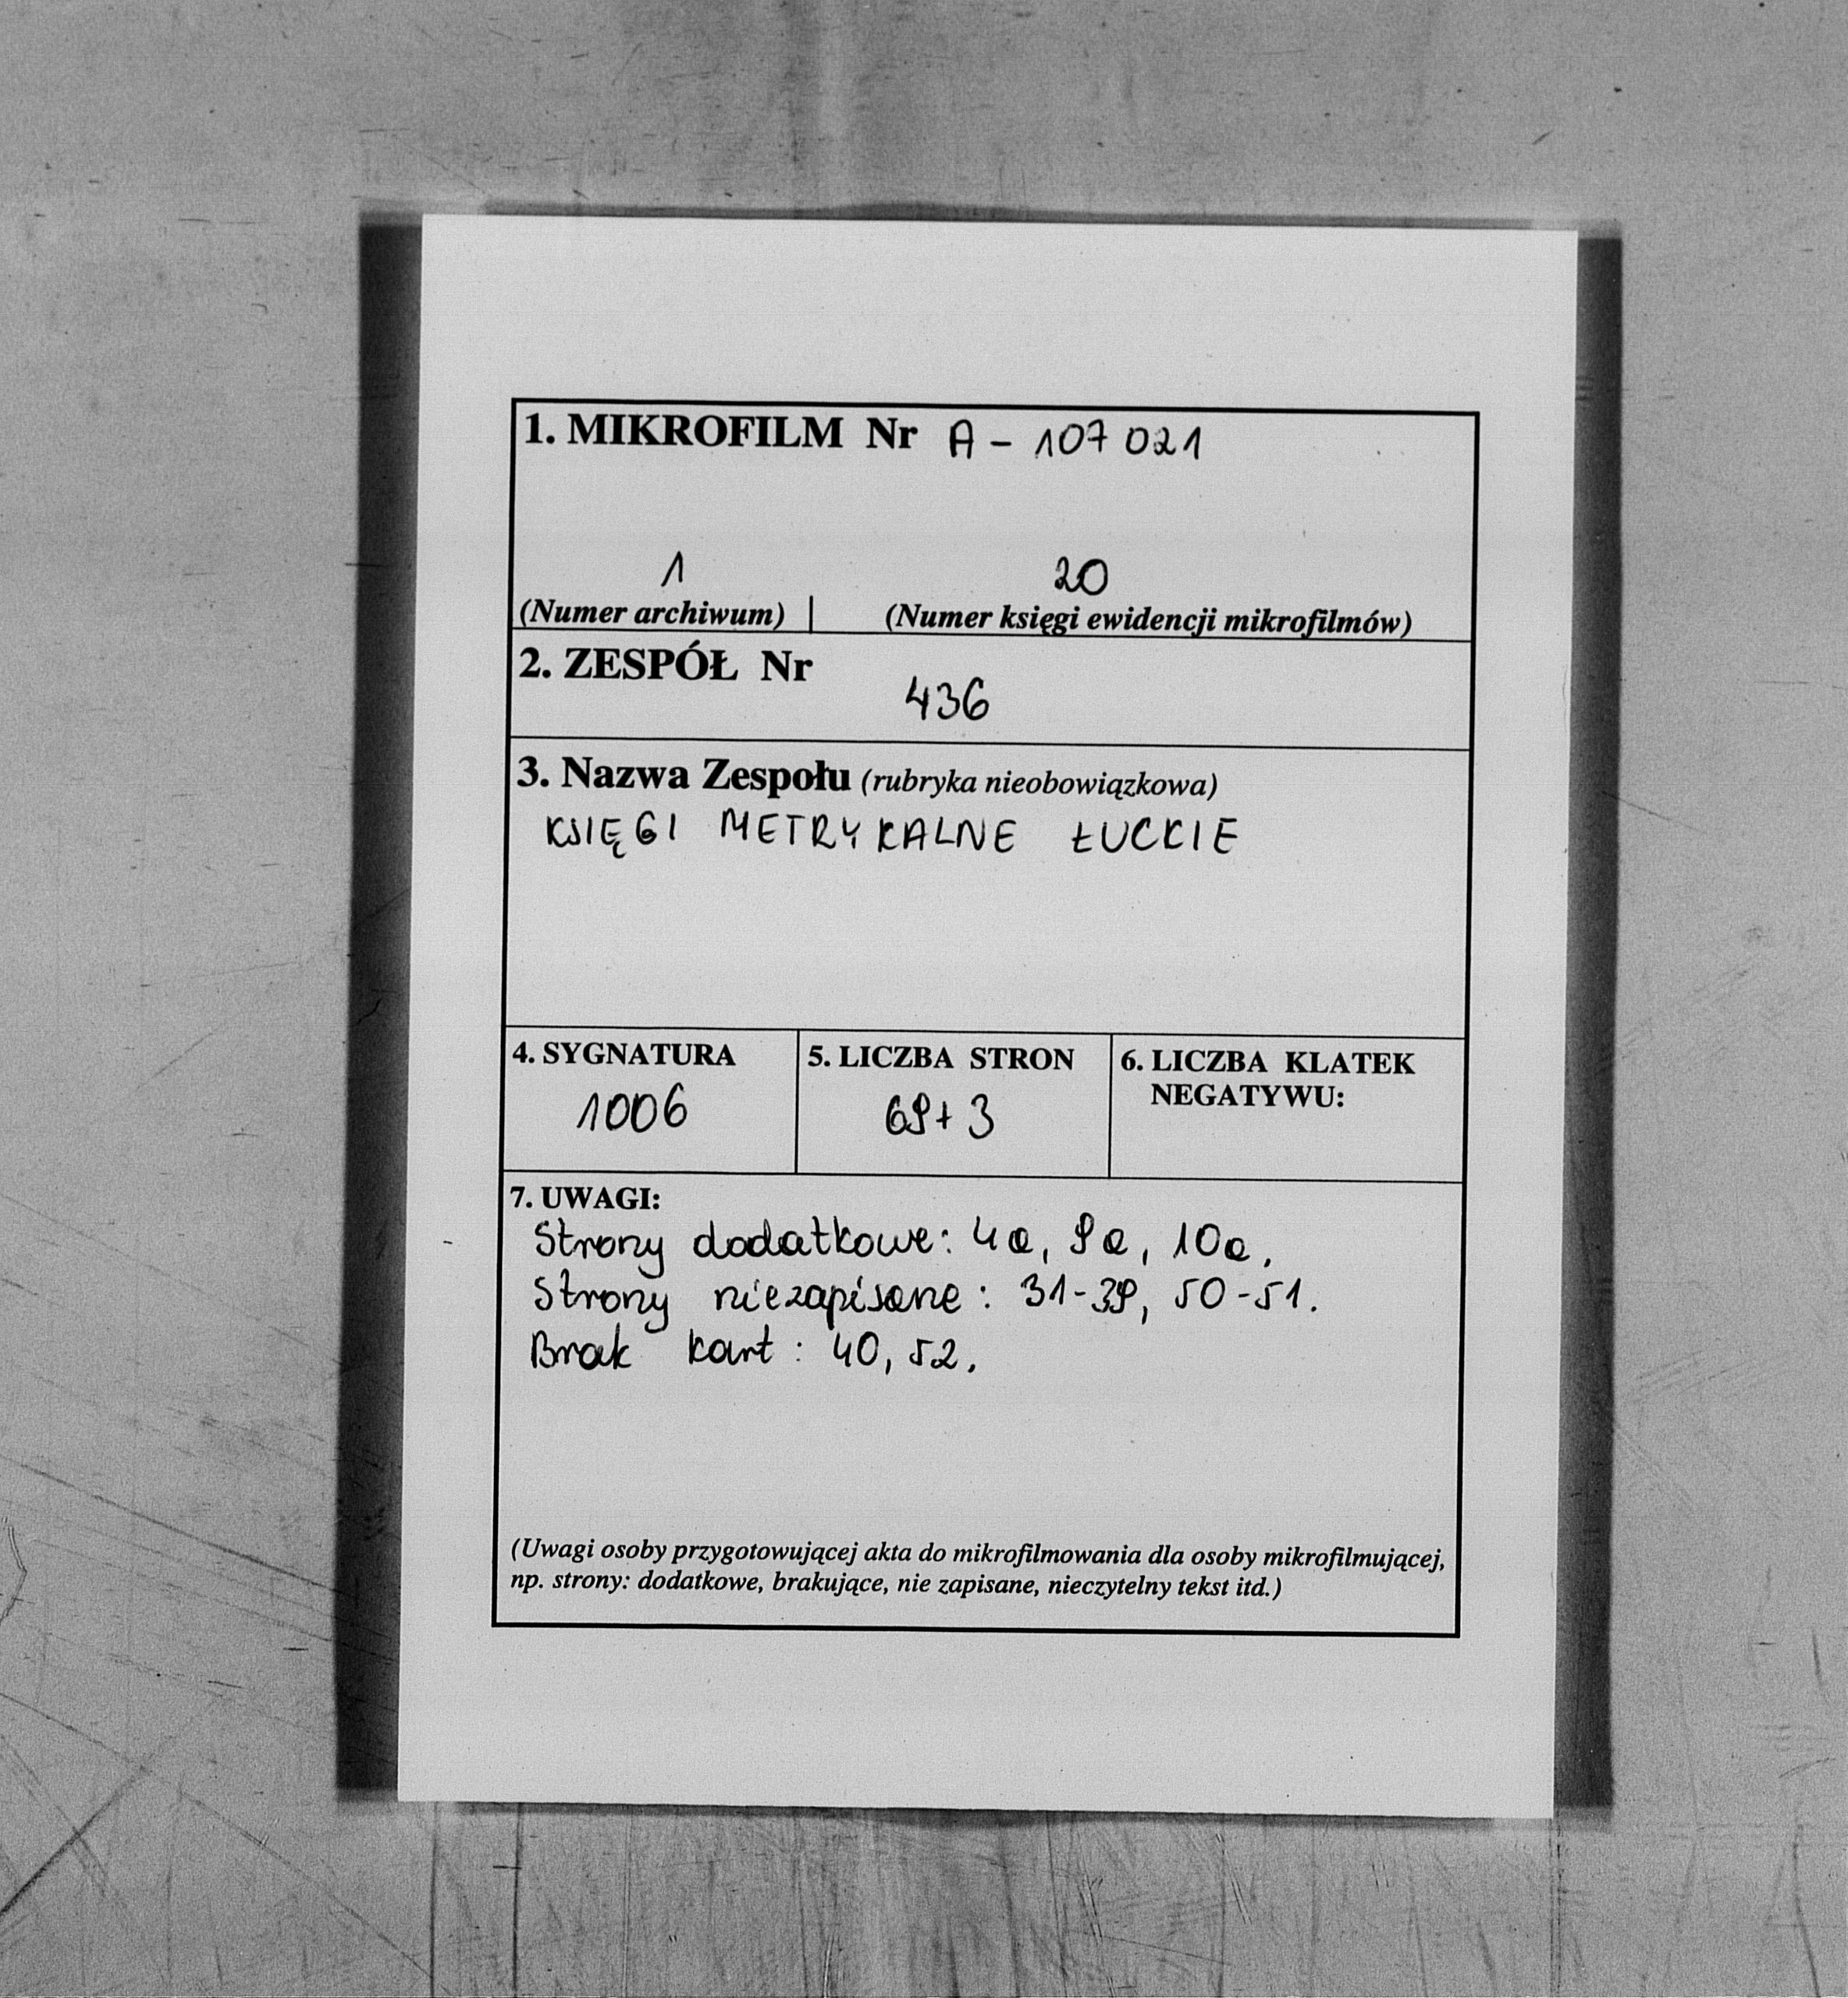 1. MIKROFILM Nr A - 107 021
1 20
(Numer archiwum) | (Numer księgi ewidencji mikrofilmów)
2. ZESPÓŁ Nr
436
3. Nazwa Zespołu (rubryka nieobowiązkowa)
KSIĘGI METRYKALNE ŁUCKIE
4. SYGNATURA 5. LICZBA STRON 6. LICZBA KLATEK
NEGATYWU:
1006 69+3
7. UWAGI:
Strony dodatkowe: 4a, 9a, 10a.
Strony niezapisane: 31-39, 50-51.
Brak kart: 40, 52.
(Uwagi osoby przygotowującej akta do mikrofilmowania dla osoby mikrofilmującej,
np. strony: dodatkowe, brakujące, nie zapisane, nieczytelny tekst itd.)